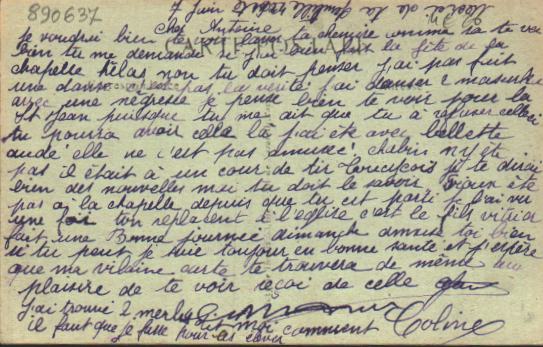 890637
7 juin
cher Antoine
CARTE POSTALE
je voudrai bien te voir dans la chemise comme sa te va
bien tu me demande si j'ai bien fait la fête de la
chapelle hélas non tu doit penser j'ai pas fait
une danse pas la vérité j'ai danser 2 masurke
avec une negresse je pense bien te voir pour la
St Jean puisque tu me dit que tu à refuser celle ci
tu pourra avoir celle la j'ai été avec
elle ne c'est pas amusé chabin n'y été
pas il était à un cour de tir je te dirai
bien des nouvelles mai tu doit le savoir été
pas a la chapelle depuis que tu est parti je j'ai vu
une foi ton replacent à l'eglise c'est le fils
fait une Bonne journee dimanche amuse toi bien
si tu peut je suie toujour en bonne santé et j'espère
que ma vilaine carte te trouvera de même au
plaisire de te voir reçoi de celle
j'ai trouvé 2 merles dit moi comment
il faut que je fasse pour les Coline